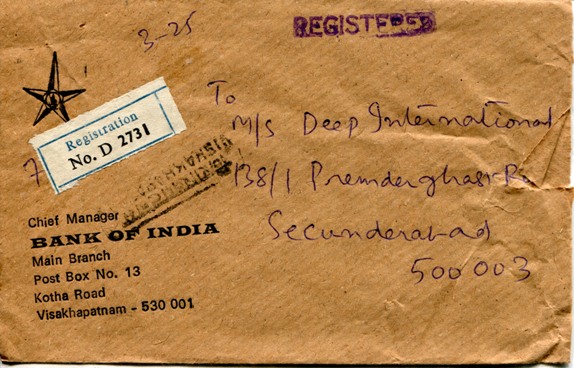 3-25
REGISTERED
Registration
No. D 2731
To
M/s Deep International
138/1 Premderghast Rd
Secunderabad
500 003
Chief Manager
BANK OF INDIA
Main Branch
Post Box No. 13
Kotha Road
Visakhapatnam - 530 001